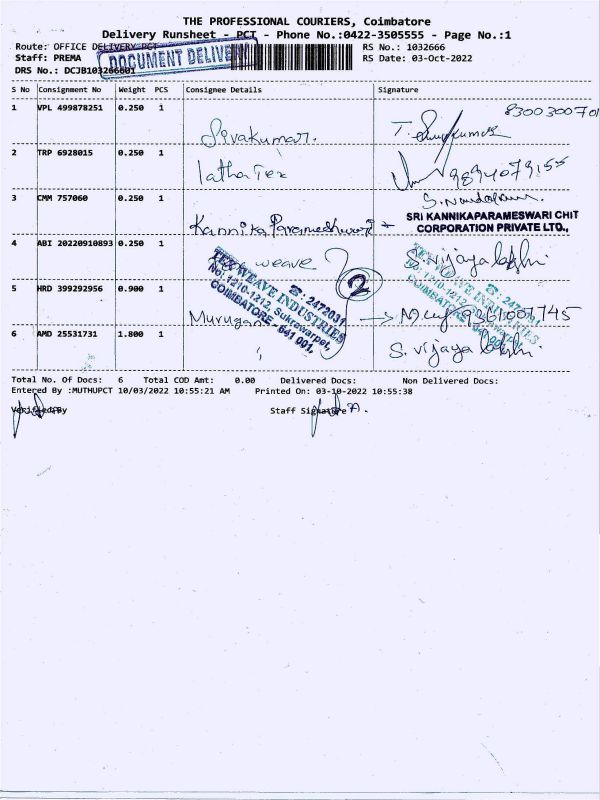 THE PROFESSIONAL COURIERS, Coimbatore
Delivery Runsheet - PCT - Phone No.:0422-3505555 - Page No.:1
Route: OFFICE DELIVERY PCT
RS No.: 1032666
Staff: PREMA
DOCUMENT DELIVERY
RS Date: 03-Oct-2022
DRS No.: DCJB103266601
S No Consignment No Weight PCS Consignee Details Signature
1 VPL 499878251 0.250 1
Sivakumar.
8300300701
2 TRP 6928015 0.250 1
latha Tex
9894073155
3 CMM 757060 0.250 1
Kannika Parameshwari
SRI KANNIKAPARAMESWARI CHIT
CORPORATION PRIVATE LTD.,
4 ABI 20220910893 0.250 1
weave
2
S. vijayalakshi
TEX WEAVE INDUSTRIES
No: 1210-1212, Sukrawarpet,
COIMBATORE - 641 001.
☎: 2472031
TEX WEAVE INDUSTRIES
No: 1210-1212, Sukrawarpet,
COIMBATORE - 641 001.
☎: 2472031
5 HRD 399292956 0.900 1
Murugan
9361001745
6 AMD 25531731 1.800 1
S. vijaya lakshi
Total No. Of Docs: 6 Total COD Amt: 0.00 Delivered Docs: Non Delivered Docs:
Entered By :MUTHUPCT 10/03/2022 10:55:21 AM Printed On: 03-10-2022 10:55:38
Verified By
Staff Signature